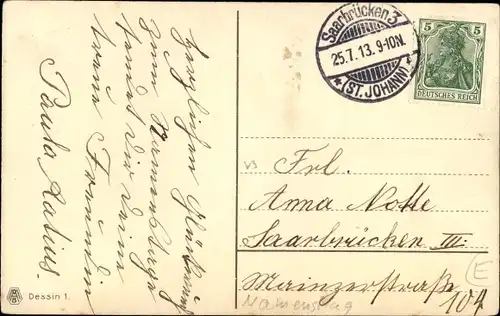 Herzlichen Glückwunsch
zum Namenstage
sendet Dir Deine
treue Freundin
Paula Ratius.
Dessin 1.
Saarbrücken 3
25.7.13. 9-10N.
* (ST. JOHANN) *
5 5
DEUTSCHES REICH
v3
Frl.
Anna Nolte
Saarbrücken III.
Mainzerstraße
104
E
Namenstag